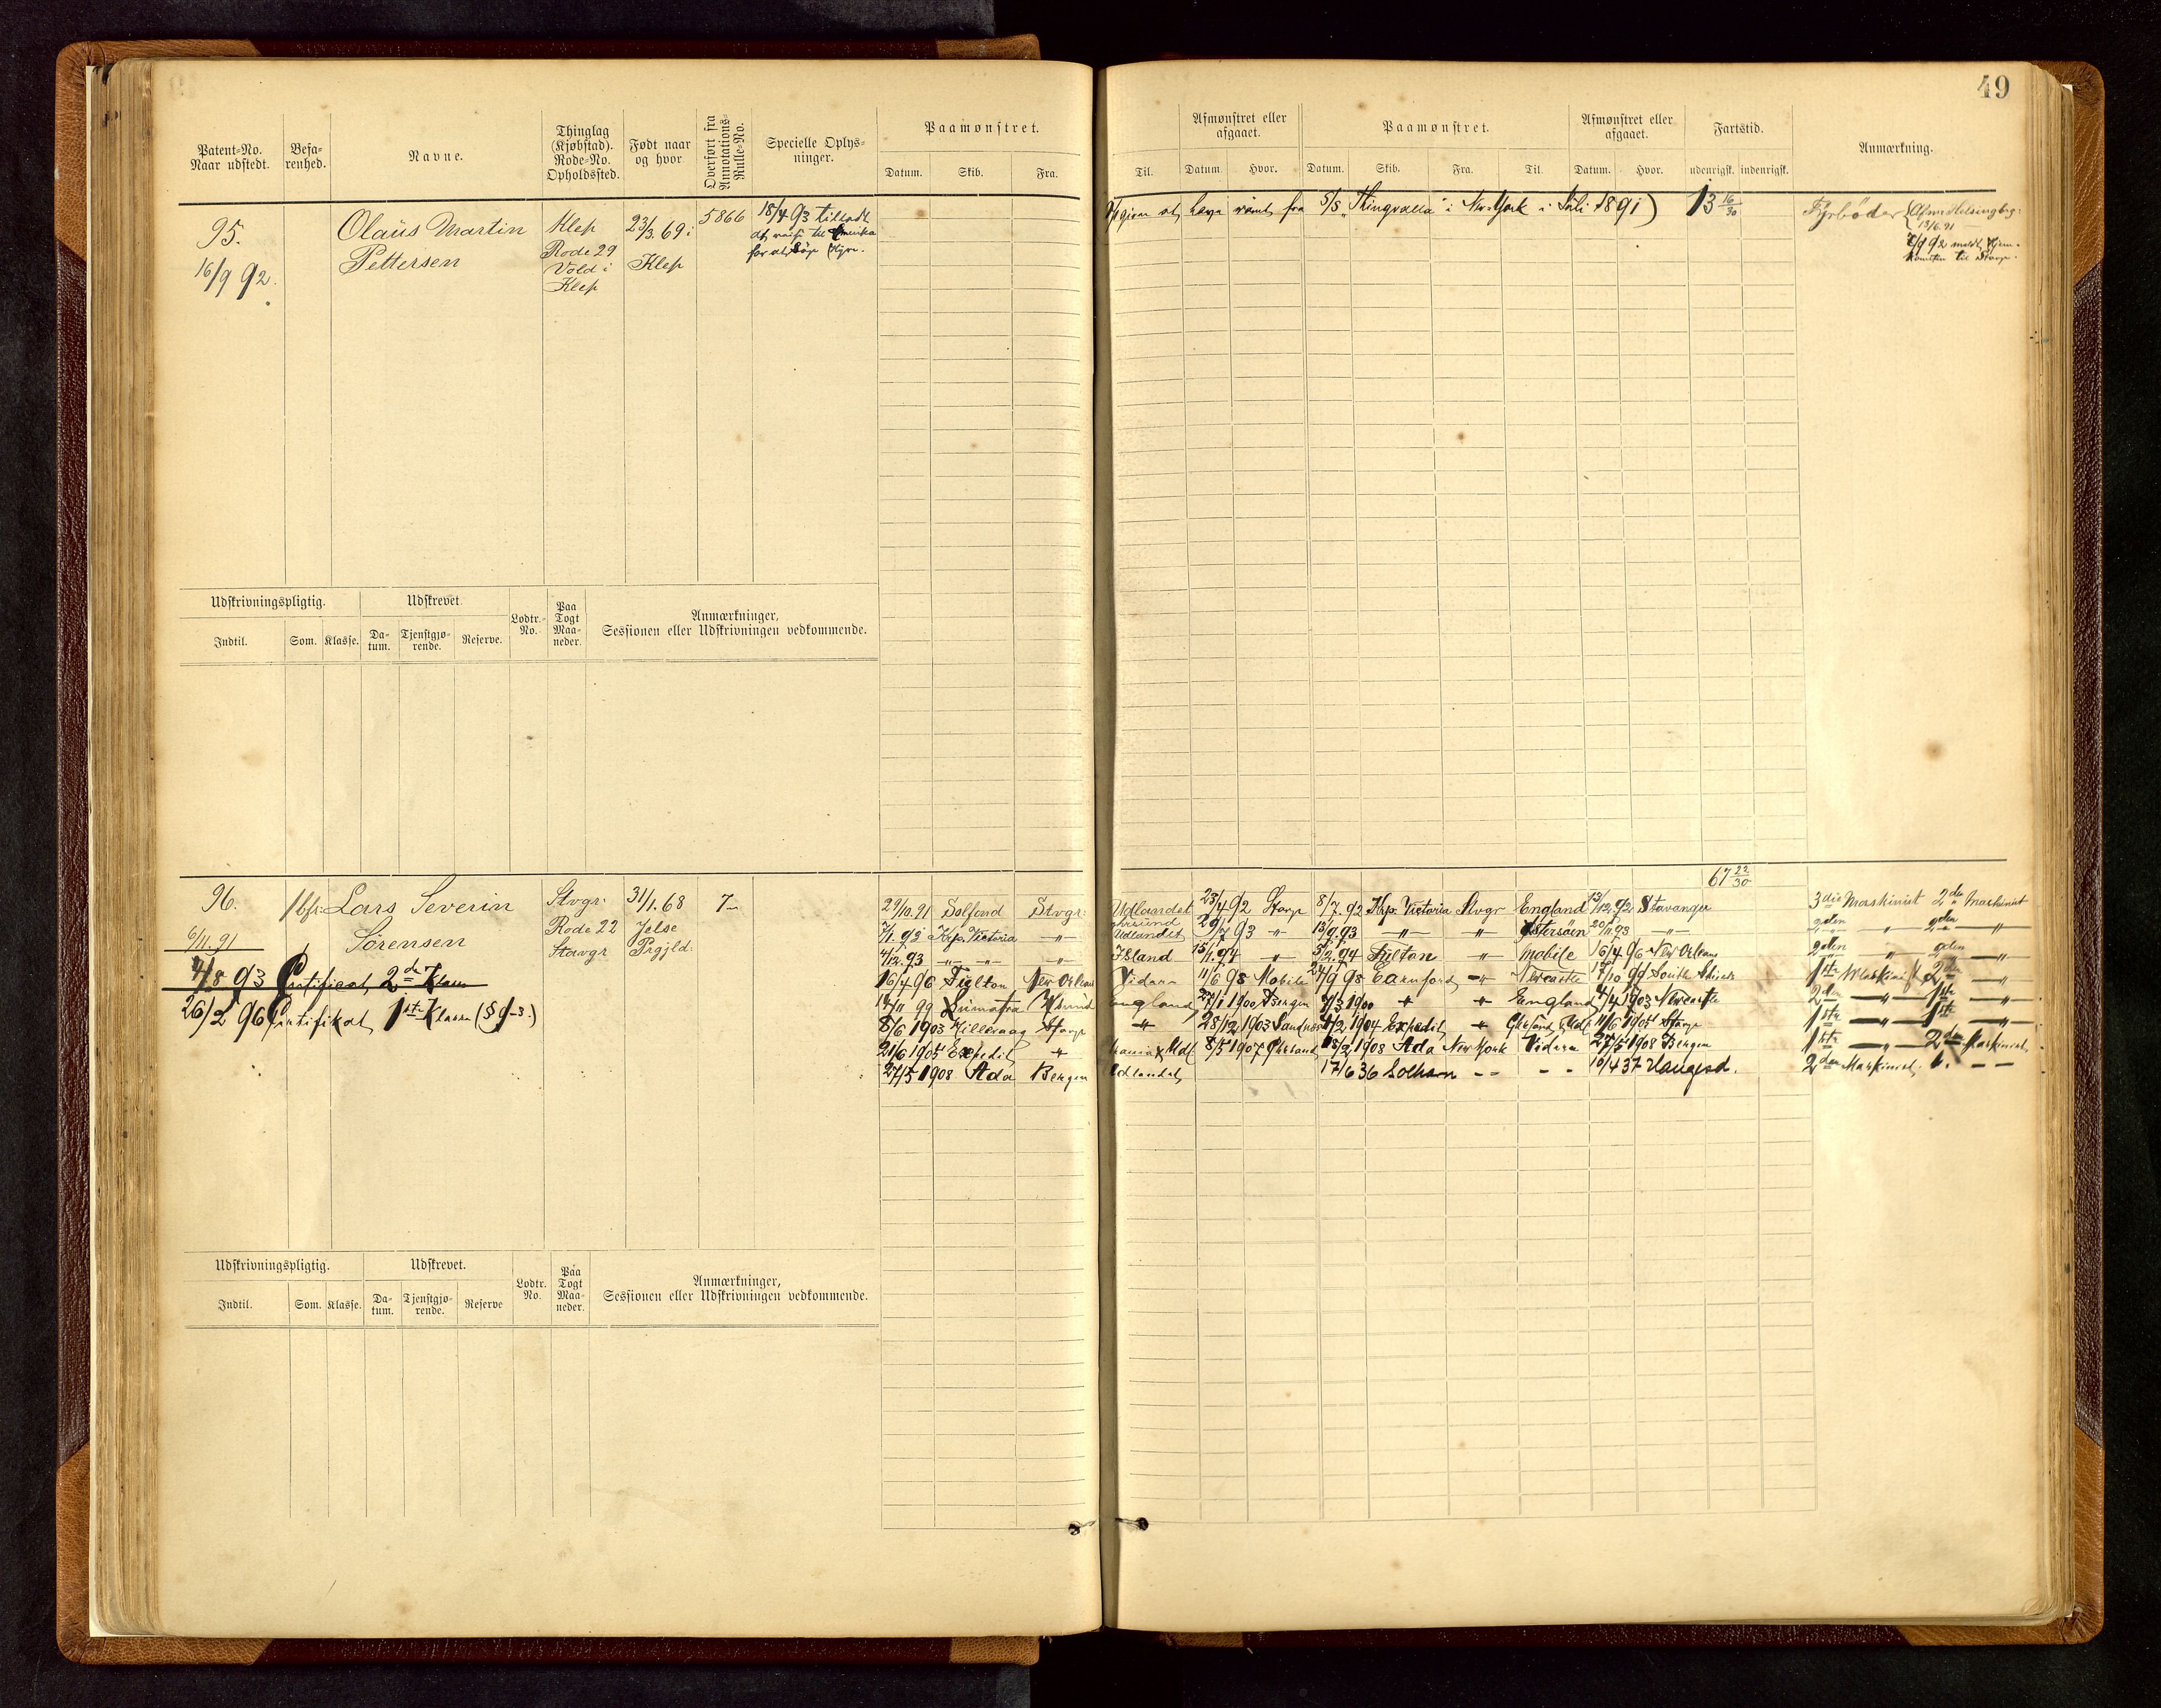 49
Patent-No. Naar udstedt. Befa-renhed. Navne. Thinglag (Kjøbstad). Rode-No. Opholdssted. Født naar og hvor Overført fra Annotations-Rulle-No. Specielle Oplys-ninger. Paamønstret.
Datum. Skib. Fra.
Afmønstret eller afgaaet. Paamønstret. Afmønstret eller afgaaet. Fartstid. Anmærkning.
Til. Datum Hvor. Datum. Skib. Fra. Til. Datum. Hvor. udenrigsk. indenrigsk.
95. Olaus Martin Klep 23/3. 69 i 5866 18/4 93 tilladt
Pettersen Rode 29 at reise til Amerika
16/9 92. Vold i Klep for at söge Hyre.
Klep
at have römt fra S/S "Thingvalla" i New York i Juli 1891) 13 16/30 Fyrböder
13/6. 91
7/9 92 meldt Hjem-
komsten til
Udskrivningspligtig. Udskrevet. Lodtr.-No. Paa Togt Maa-neder. Anmærkninger, Sessionen eller Udskrivningen vedkommende.
Indtil. Som. Klasse. Da-tum. Tjenstgjø-rende. Reserve.
67 22/30
96. Lars Severin Stvgr. 31/1. 68 7
Sørensen Rode 22 Jelse
6/11. 91 Stavgr Prgjld.
4/8 93 Certificat 2den Klasse
26/2 96 Certifikat 1ste Klasse (§ 9-3.)
29/10. 91 Solfond Stvgr. Udlandet 23/4 92 8/7. 92 Krp. Victoria Stvgr England 13/12. 92 Stavanger 3die Maskinist 2den Maskinist
7/1. 93 Krp. Victoria -"- Udlandet 29/7 93 -"- 13/9. 93 -"- -"- Østersöen 20/11. 93 -"- 2den -"- 2den -"-
4/12. 93 -"- -"- Island 15/1. 94 -"- 5/2. 94 -"- Mobile 16/4. 96 New Orleans 2den " 2den -"-
16/4 96 New Orleans Videre 11/6 98 Mobile 24/9 98 -"- Newcastle 17/10 99 South Shields 1ste Maskinist 2den -"-
17/11 99 Sumatra England 27/1 1900 Bergen 4/3 1900 " " England 4/4 1903 Newcastle 2den -"- 1ste -"-
8/6 1903 Stavgr -"- 28/12 1903 Sandnes 4/2 1904 Expedit " 4/6 1905 Stavgr 1ste -"- 1ste -"-
21/6 1905 Expedit " 8/5 1907 18/2 1908 Ada New York Videre 27/5 1908 Bergen 1ste -"- 2den Maskinist
27/5 1908 Ada Bergen Udlandet 17/6 36 Solhavn - - - - 16/4 37 Haugesd. 2den Maskinist. - -
Udskrivningspligtig. Udskrevet. Lodtr. No. Paa Togt Maa-neder. Anmærkninger, Sessionen eller Udskrivningen vedkommende.
Indtil. Som. Klasse. Da-tum. Tjenstgjø-rende. Reserve